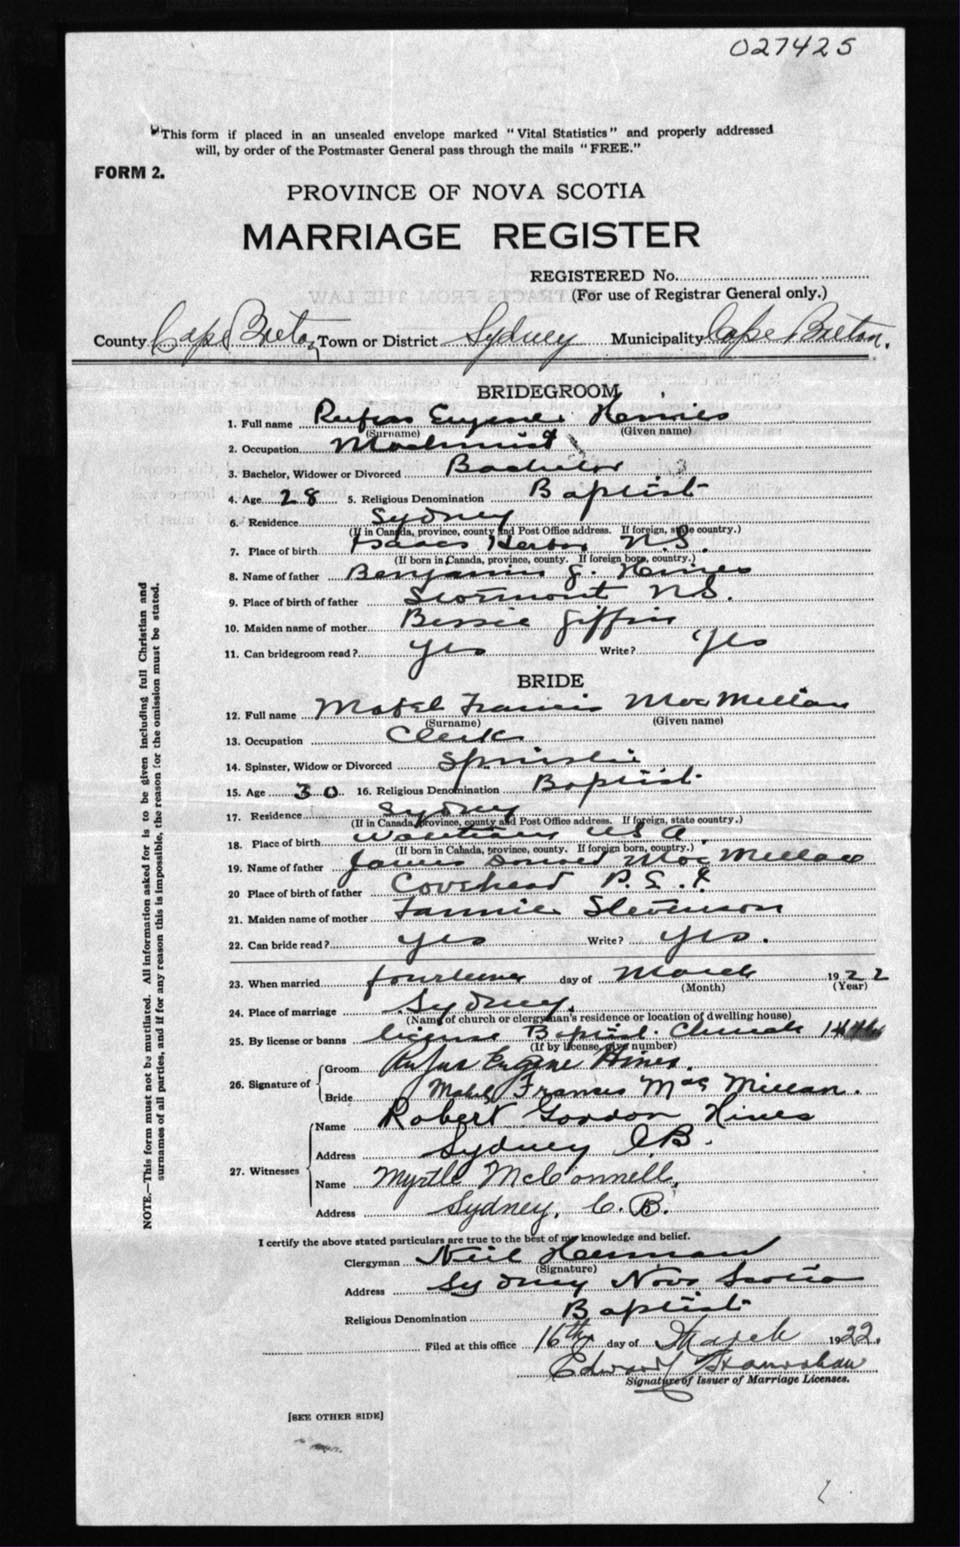 027425
"This form if placed in an unsealed envelope marked "Vital Statistics" and properly addressed
will, by order of the Postmaster General pass through the mails "FREE."
FORM 2.
PROVINCE OF NOVA SCOTIA
MARRIAGE REGISTER
REGISTERED No.
(For use of Registrar General only.)
County Cape Breton Town or District Sydney Municipality Cape Breton.
BRIDEGROOM
1. Full name Rufus Eugene Hennies
(Surname) (Given name)
2. Occupation Machinist
3. Bachelor, Widower or Divorced Bachelor
4. Age 28 5. Religious Denomination Baptist
6. Residence Sydney
(If in Canada, province, county and Post Office address. If foreign, state country.)
7. Place of birth Isaacs Harbor N.S.
(If born in Canada, province, county. If foreign born, country.)
8. Name of father Benjamin J. Hines
9. Place of birth of father Stormont N.S.
10. Maiden name of mother Bessie Giffin
11. Can bridegroom read? yes Write? yes
BRIDE
12. Full name Mabel Francis MacMillan
(Surname) (Given name)
13. Occupation Clerk
14. Spinster, Widow or Divorced Spinster
15. Age 30 16. Religious Denomination Baptist
17. Residence Sydney
(If in Canada, province, county and Post Office address. If foreign, state country.)
18. Place of birth U S A
(If born in Canada, province, county. If foreign born, country.)
19. Name of father James MacMillan
20 Place of birth of father Covehead P.E.I
21. Maiden name of mother Fannie Stevenson
22. Can bride read? yes Write? yes.
23. When married fourteenth day of March 1922
(Month) (Year)
24. Place of marriage Sydney,
(Name of church or clergyman's residence or location of dwelling house)
25. By license or banns license Baptist Church
(If by license, give number)
26. Signature of Groom Rufus Eugene Hines.
Bride Mabel Francis MacMillan.
27. Witnesses Name Robert Gordon Hines
Address Sydney C.B.
Name Myrtle McConnell,
Address Sydney, C.B.
I certify the above stated particulars are true to the best of my knowledge and belief.
Clergyman Neil Herman
(Signature)
Address Sydney Nova Scotia
Religious Denomination Baptist
Filed at this office 16th day of March 1922.
Edward
Signature of Issuer of Marriage Licenses.
[SEE OTHER SIDE]
NOTE.—This form must not be mutilated. All information asked for is to be given including full Christian and
surnames of all parties, and if for any reason this is impossible, the reason for the omission must be stated.